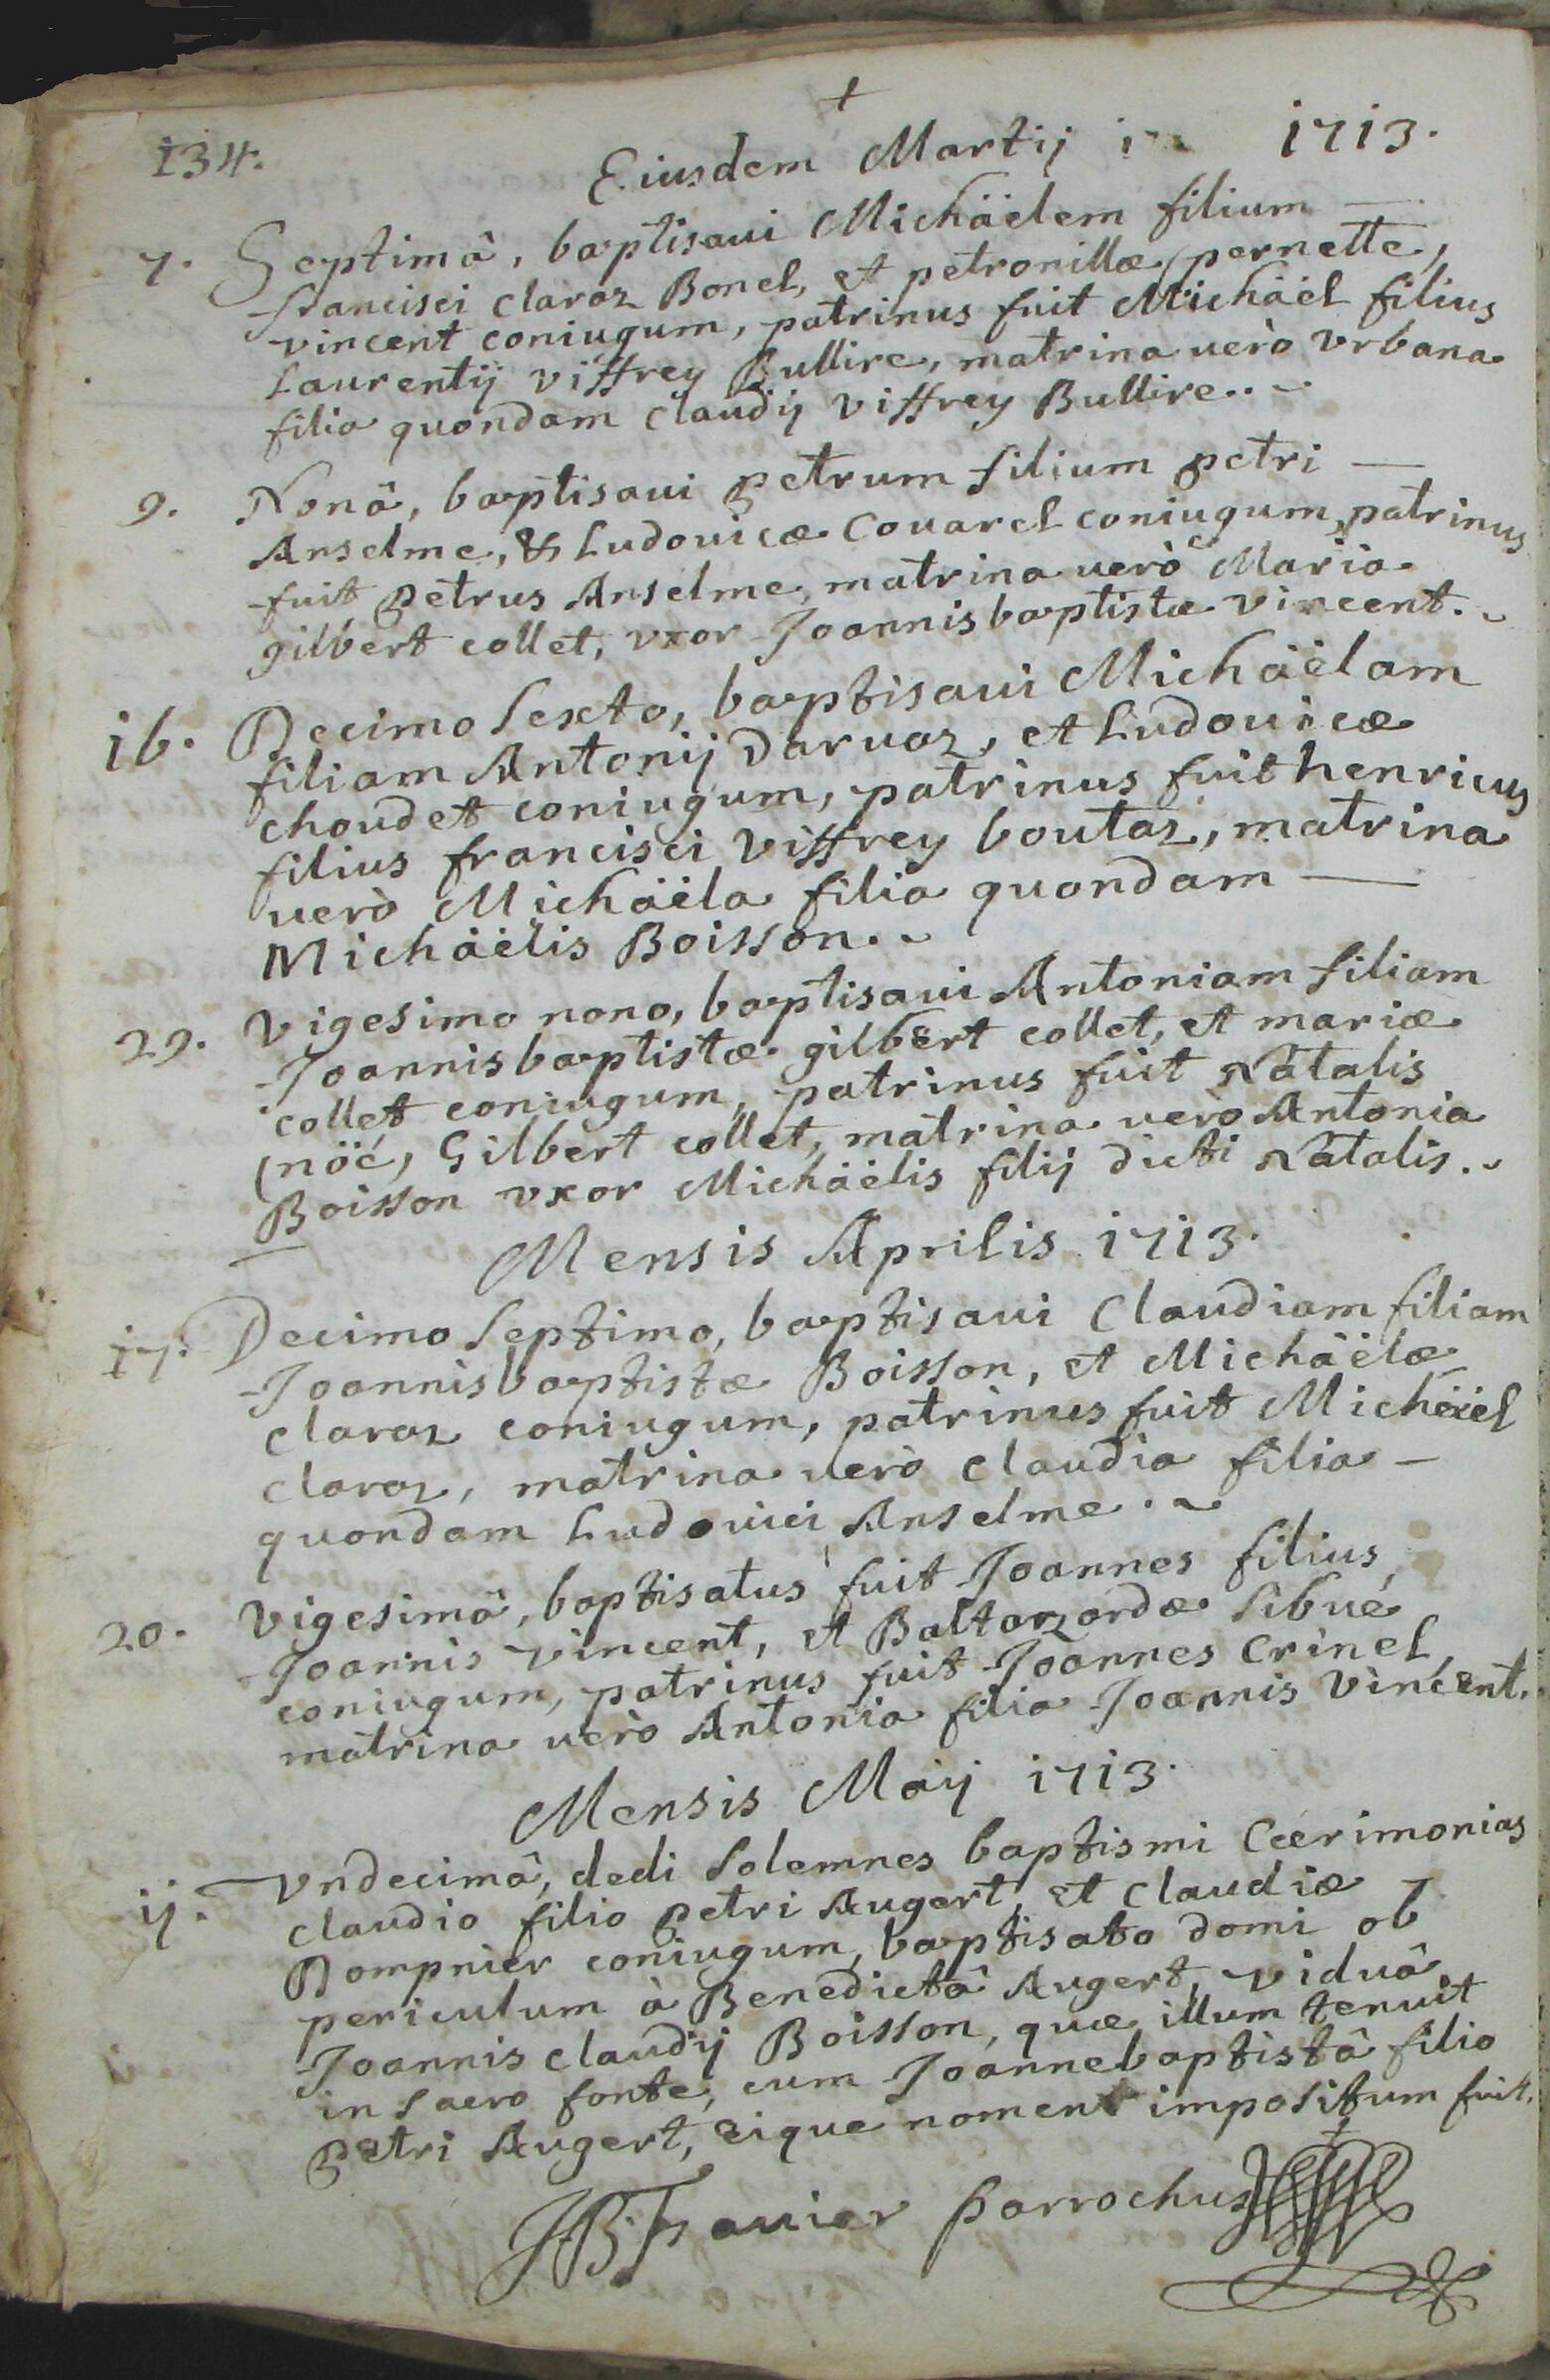 +
134.
Eiusdem Martij 1713.
7. Septimâ, baptisaui Michäelem filium
francisci claraz Bonel, et petronillæ (pernette)
vincent coniugum, patrinus fuit Michäel filius
Laurentij viffrey Bullire, matrina uerò vrbana
filia quondam claudij viffrey Bullire..
9. Nonâ, baptisaui petrum filium petri —
Anselme, & Ludouicæ Couarel coniugum, patrinus
fuit petrus Anselme, matrina uerò Maria
gilbert collet, vxor Joannisbaptistæ vincent.
16. Decimo sexto, baptisaui Michäelam
filiam Antonij Daruaz, et Ludouicæ
choudet coniugum, patrinus fuit henricus
filius francisci viffrey boutaz, matrina
uerò Michäela filia quondam —
Michäelis Boisson.
29. Vigesimo nono, baptisaui Antoniam filiam
Joannisbaptistæ gilbert collet, et mariæ
collet coniugum, patrinus fuit Natalis
(nöé) Gilbert collet, matrina uerò Antonia
Boisson vxor Michäelis filij dicti Natalis.
Mensis Aprilis 1713.
17. Decimo septimo, baptisaui claudiam filiam
Joannisbaptistæ Boisson, et Michäelæ
claraz coniugum, patrinus fuit Michäel
claraz, matrina uerò claudia filia —
quondam Ludouici Anselme.
20. Vigesimâ, baptisatus fuit Joannes filius
Joannis vincent, et Baltazardæ sibué
coniugum, patrinus fuit Joannes Crinel,
matrina uerò Antonia filia Joannis vincent.
Mensis Maij 1713.
ij. vndecimâ, dedi solemnes baptismi Cærimonias
claudio filio petri Augert, et claudiæ
Dompnier coniugum, baptisato domi ob
periculum à Benedictâ Augert, viduâ
Joannis claudij Boisson, quæ illum tenuit
in sacro fonte, cum Joannebaptistâ filio
petri Augert, eique nomen impositum fuit.
parrochus